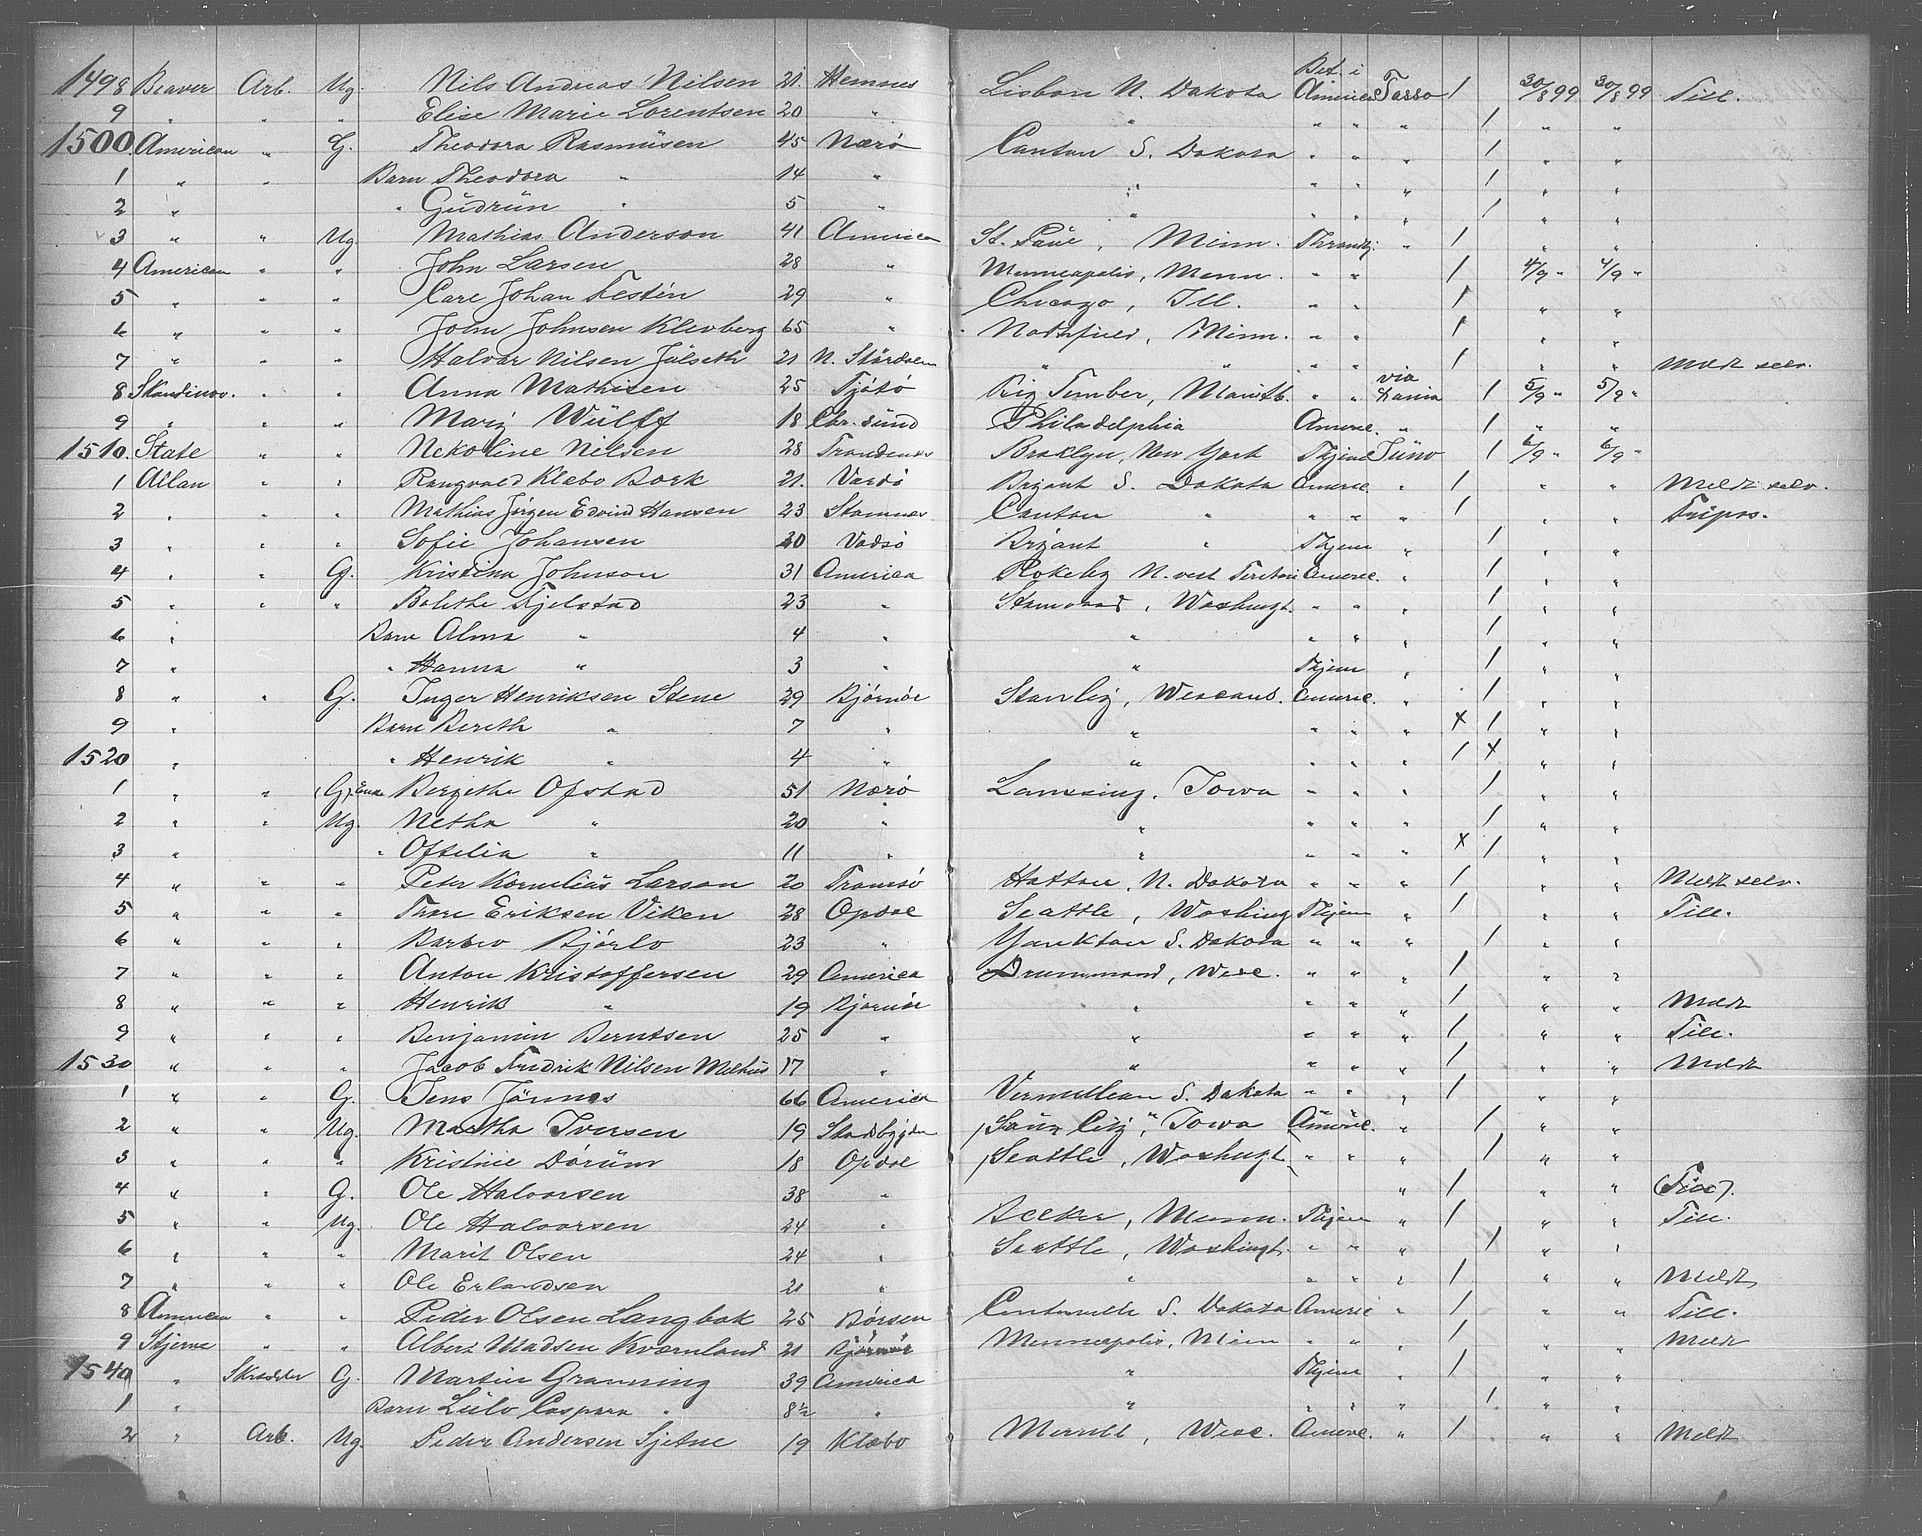 1498 Beaver Arb. Ug. Nils Andreas Nilsen 21. Hemnes Lisbon N. Dakota Bet. i Americ Tasso 1 30/8 99 30/8 99 Till.
9 " " " Elise Marie Lorentsen 20 " " " " " 1 " "
1500. American " G. Theodora Rasmüsen 45 Nærö Canton S. Dakota " " " 1 " "
1 " " Barn Theodora " 14 " " " " " 1 " "
2 " " Gŭdrŭn " 5 " " " " " 1 " "
3 " " Ug. Mathias Anderson 41 America St. Paŭl, Minn. Throndhj. " 1 " "
4 American " " John Larsen 28 " Minneapolis, Minn. " " 1 4/9 " 4/9 "
5 " " " Carl Johan Festén 29 " Chicago, Ill. " " 1 " "
6 " " " John Johnsen Klevberg 65 " Nothfield, Minn. " " 1 " "
7 " " " Halvar Nilsen Jŭlseth 21 N. Stördalen " " " " 1 " " Meldt selv.
8 Skandinav. " " Anna Mathisen 25 Tjötö Big Timber, Montb. " " via 1 5/9 " 5/9 "
9 " " " Mary Wŭlff 18 Chr. sŭnd Philadelphia Americ. " 1 " "
1510. State " " Nekoline Nilsen 28 Trondenes Broklyn, New York Thjem Jŭno 1 6/9 " 6/9 "
1 Allan " " Rangvald Klebo Bork 21. Vardö Bryant S. Dakota Americ. " 1 " " Meldt selv.
2 " " " Mathias Jörgen Edvind Hansen 23 Stamnes Canton " " " " 1 " "
3 " " " Sofie Johansen 20 Vadsö Bryant " Thjem " 1 " "
4 " " G. Kristina Johnson 31 America Rokeby N. vest Teritori Americ. " 1 " "
5 " " " Bolethe Fjelstad 23 " Stanwood, Washingt. " " " 1 " "
6 " Barn Alma " 4 " " " " " 1 " "
7 " " Hanna " 3 " " Thjem " 1 " "
8 " " G. Inger Henriksen Stene 29 Bjørnör Stanley, Wiscons. Americ. " 1 " "
9 " Barn Bereth " 7 " " " " " x 1 " "
1520 " " Henrik " 4 " " " " " 1 x " "
1 " " (G). Enke Bergithe Ofstad 51 Nærö Lanssing. Iowa " " " 1 " "
2 " " Ug. Netha " 20 " " " " " 1 " "
3 " " Oftelia " 11 " " " " " x 1 " "
4 " " " Peter Kornelius Larson 20 Tromsö Hatton, N. Dakota " " " 1 " " Meldt selv.
5 " " " Tore Eriksen Viken 28 Opdal Seattle, Washing Thjem " 1 " " Till.
6 " " " Barbro Bjørlo 23 " Yankton S. Dakota " " " 1 " "
7 " " " Anton Kristoffersen 29 America Drummond, Wisc. " " " 1 " "
8 " " " Henrik " 19 Bjørnör " " " " 1 " " Meldt
9 " " " Benjamin Berntsen 25 " " " " " 1 " " Till.
1530 " " " Jacob Fredrik Nilsen Melhŭs 17 " " " " " 1 " " Meldt
1 " " G. Jens Jönnes 66 America Vermillean S. Dakota " " " 1 " "
2 " " Ug. Martha Iversen 19 Stadsbygden City, Iowa Americ. " 1 " "
3 " " " Kristine Dörŭm 18 Opdal Seattle, Washingt " " " 1 " "
4 " " G. Ole Halvorsen 38 " " 1 " " (Till).
5 " " Ug. Ole Halvorsen 24 " Acker, Minn. Thjem " 1 " " Till.
6 " " " Marit Olsen 24 " Seattle, Washingt. " " " 1 " "
7 " " " Ole Erlandsen 21 " " " " " 1 " " Meldt
8 American " " Peder Olsen Langbak 25 Børsen Centerville S. Dakota Americ " 1 " " Till.
9 Stjerne " " Albert Madsen Kvernland 21 Bjørnör Minneapolis, Minn " " 1 " " Meldt
1540 " Skrædder G. Martin Granning 39 America " Thjem " 1 " "
1 " Barn Lŭlv Caspara " 8½ " " " " " 1 " "
2 " Arb. Ug. Peder Andersen Sjetne 19 Klæbo Merrill, Wisc. Americ. " 1 " " Meldt